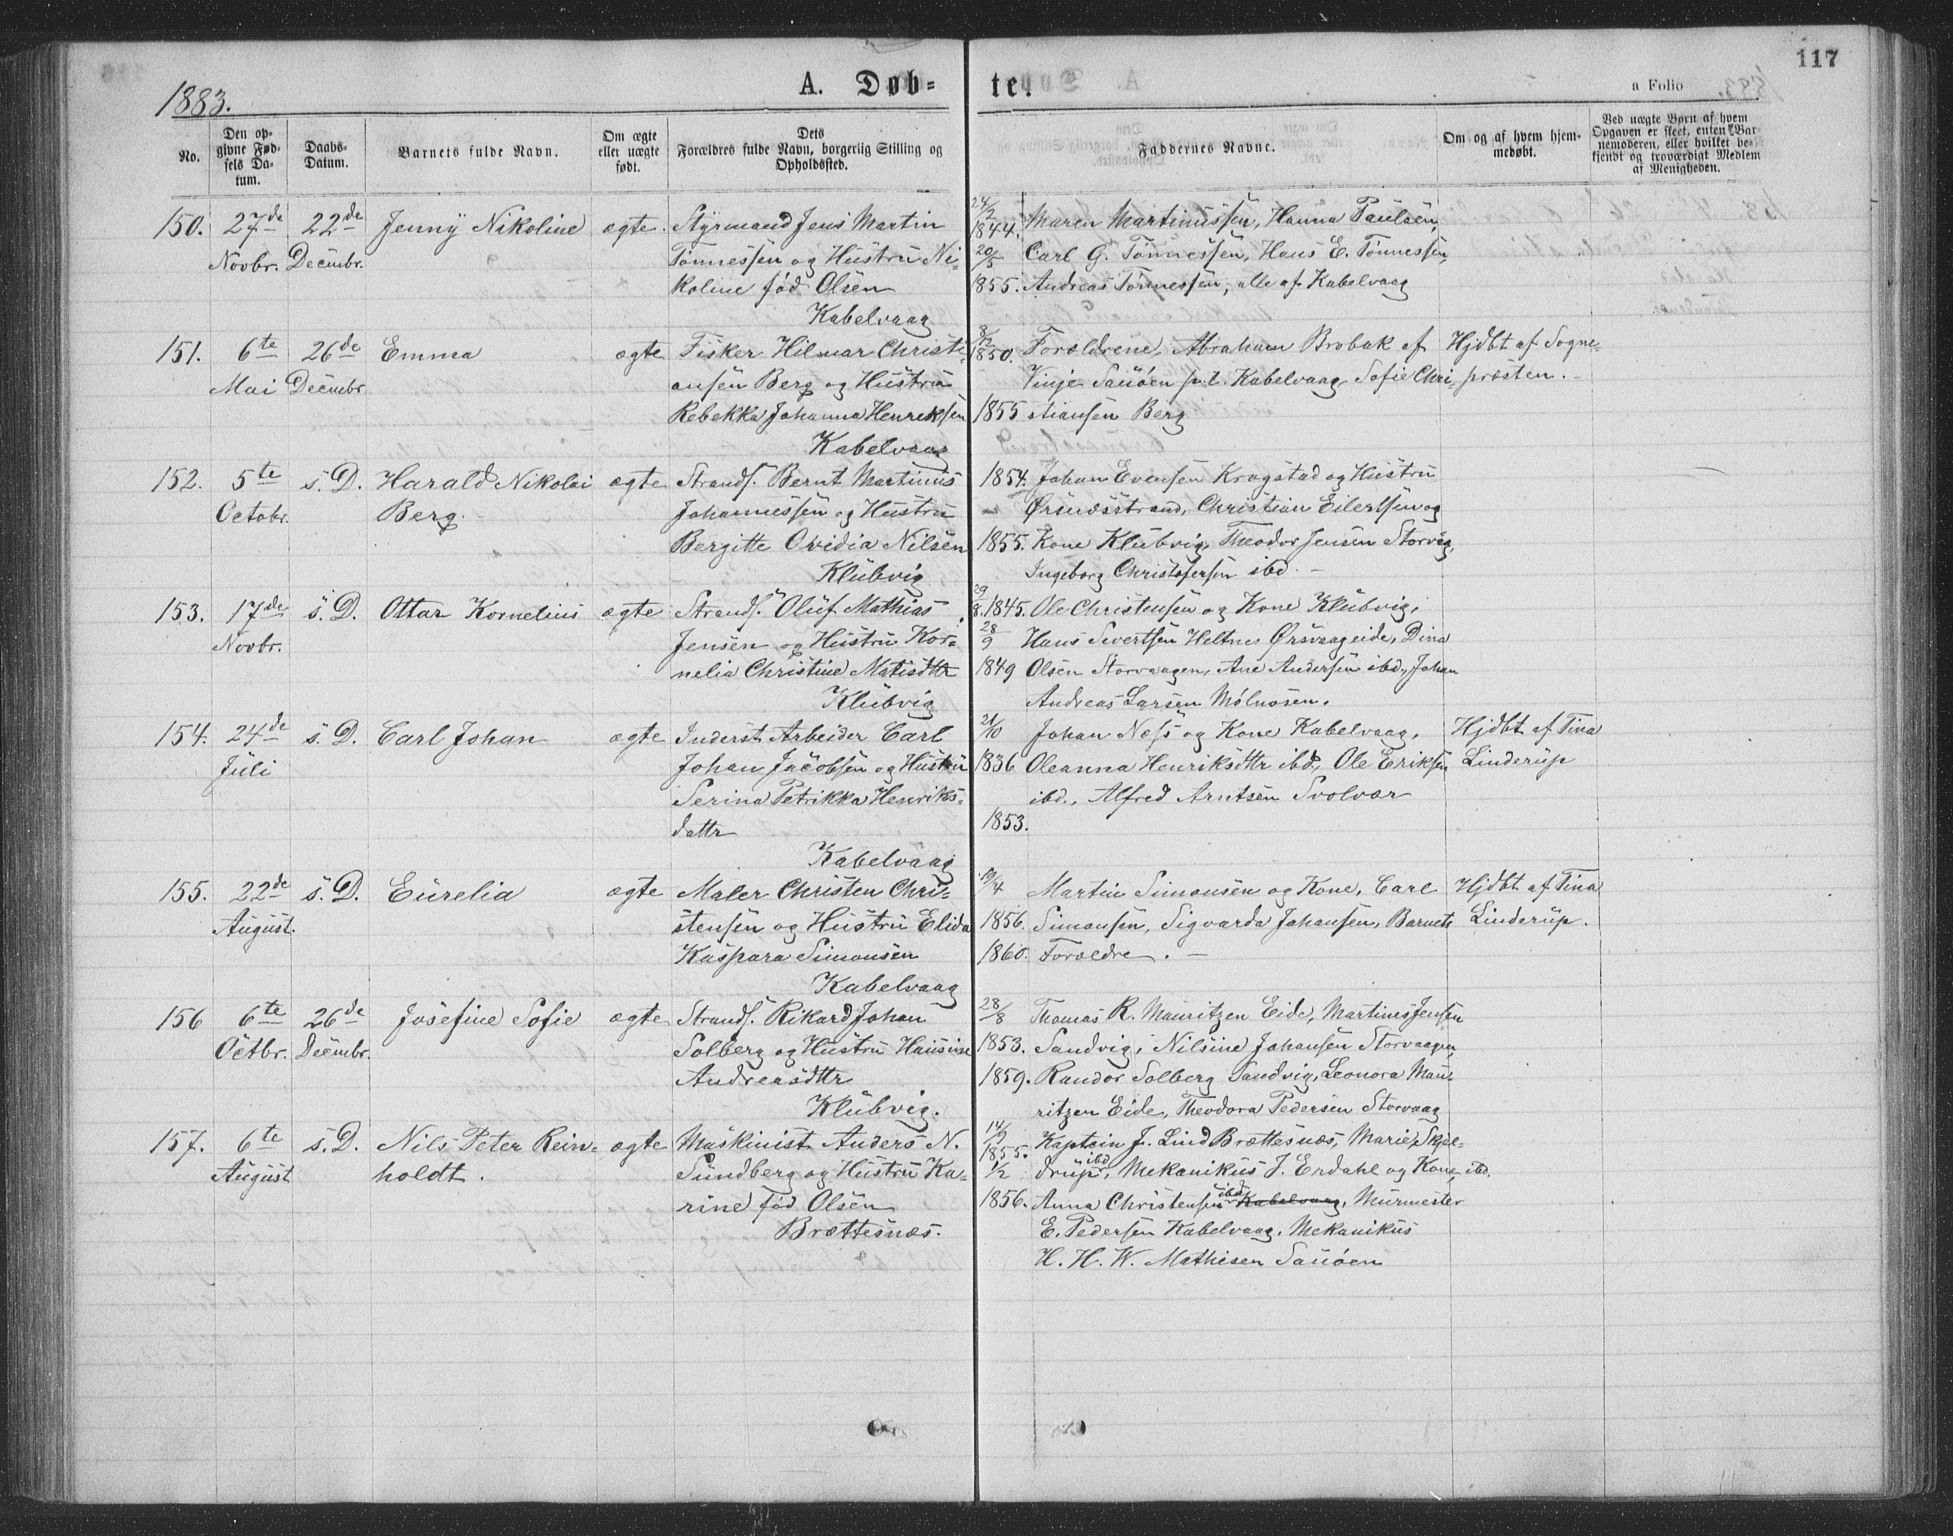 117
1883. A. Døb- te. a Folio
No. Den opgivne Fødsels Datum. Daabs-Datum. Barnets fulde Navn. Om ægte eller uægte født. Dets Forældres fulde Navn, borgerlig Stilling og Opholdssted. Faddernes Navne. Om og af hvem hjemmedøbt. Ved uægte Børn af hvem Opgaven er skeet, enten Barnemoderen, eller hvilket bekjendt og troværdigt Medlem af Menigheden.
150. 27de 22de Jenny Nikoline ægte. Styrmand Jens Martin 24/2 1844. Maren Martinussen, Hanna Paulsen,
Novbr. Decembr. Tønnessen og Hustru Ni- 20/5 Carl G. Tønnessen, Hans E. Tønnessen,
koline fød Olsen 1855. Andreas Tønnessen, alle af Kabelvaag
Kabelvaag
151. 6te 26de Emma ægte Fisker Hilmar Christi- 8/12 1850. Forældrene, Abraham Brobak af Hjdbt af Sogne-
Mai Decembr ansen Berg og Hustru Vinje Sauøen p.t. Kabelvaag, Sofie Chri- præsten.
Rebekka Johanna Henriksen 1855 stiansen Berg
Kabelvaag
152. 5te s. D. Harald Nikolai ægte Strands. Bernt Martinus 1854. Johan Evensen Kragstad og Hustru
Octobr. Berg. Johannessen og Hustru - Ørsnæsstrand, Christian Eilertsen og
Bergitte Ovidia Nilsen 1855. Kone Klubvig, Theodor Jensen Storvåg,
Klubvig Ingeborg Christofersen ibd. -
153. 17de s. D. Ottar Kornelius ægte Strands. Oluf Mathias 29/8. 1845. Ole Christensen og Kone Klubvig,
Novbr. Jensen og Hustru Kor- 28/9 Hans Sivertsen Heltnes Ørsvaageide, Dina
nelia Christine Matisdttr 1849 Olsen Storvaagen, Ane Andersen ibd., Johan
Klubvig Andreas Larsen Mølnosen.
154. 24de s. D. Carl Johan ægte Inderst Arbeider Carl 21/10 Johan Ness og Kone Kabelvaag, Hjdbt af Tina
Juli Johan Jacobsen og Hustru 1836 Oleanna Henriksdttr ibd., Ole Eriksen Linderup
Serina Petrikka Henriks- ibd., Alfred Arntsen Svolvær
dattr 1853.
Kabelvaag
155. 22de s. D. Eurelia ægte Maler Christen Chri- 19/4 Martin Simonsen og Kone, Carl Hjdbt af Tina
August. stensen og Hustru Elida 1856. Simonsen, Sigvarda Johansen, Barnets Linderup.
Kaspara Simonsen 1860. Forældre. -
Kabelvaag
156 6te 26de Josefine Sofie ægte Strands. Rikard Johan 28/8 Thomas R. Mauritzen Eide, Martines Jensen
Octbr. Decmbr. Solberg og Hustru Hansine 1853. Sandvig, Nilsine Johansen Storvaagen,
Andreasdttr 1859. Randor Solberg Sandvig, Leonora Mau-
Klubvig. ritzen Eide, Theodora Pedersen Storvaag
157. 6te s. D. Nils Peter Rein- ægte Maskinist Anders N. 14/9 1855. Kaptein J. Lind Brættesnæs, Marie Skjel-
August holdt. Sundberg og Hustru Ka- 1/2 drup ibd, Mekanikus J. Erdahl og Kone, ibd.
rine fød Olsen 1856. Anna Christensen ibd Kabelvaag, Murmester
Brættesnæs. E. Pedersen Kabelvaag, Mekanikus
H. H. W. Mathisen Sauøen